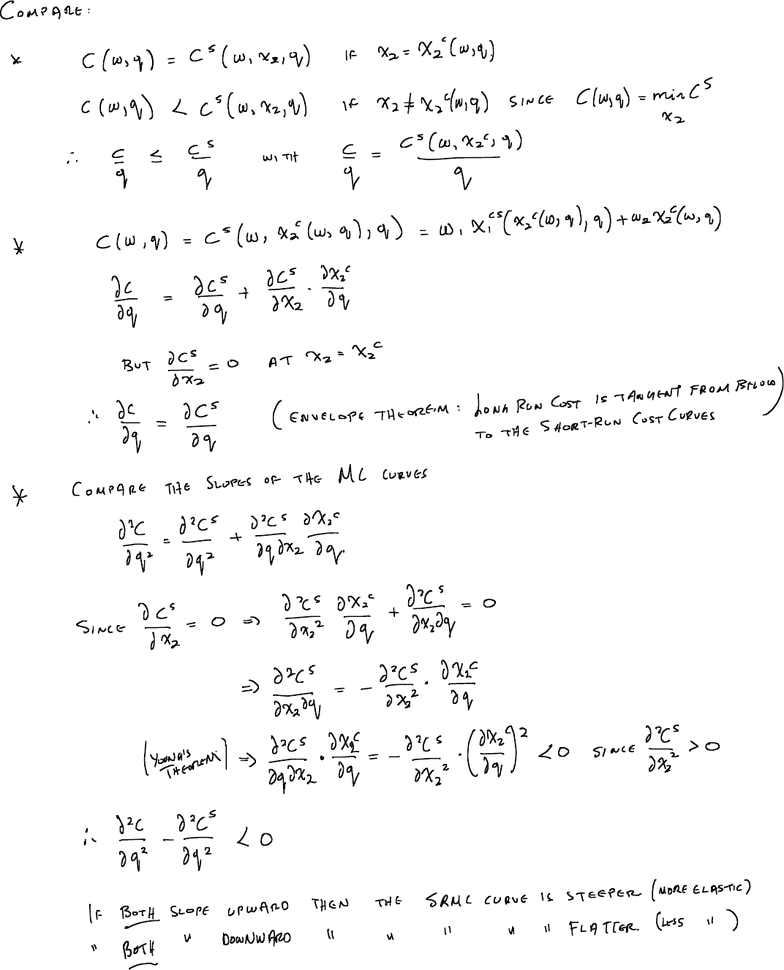 COMPARE:
* C(w,q) = Cˢ(w,x₂,q) IF x₂ = x₂ᶜ(w,q)
C(w,q) < Cˢ(w,x₂,q) IF x₂ ≠ x₂ᶜ(w,q) SINCE C(w,q) = min Cˢ
x₂
∴ C/q ≤ Cˢ/q WITH C/q = Cˢ(w,x₂ᶜ,q)/q
* C(w,q) = Cˢ(w,x₂ᶜ(w,q),q) = w₁x₁ᶜˢ(x₂ᶜ(w,q),q) + w₂x₂ᶜ(w,q)
∂C/∂q = ∂Cˢ/∂q + ∂Cˢ/∂x₂ · ∂x₂ᶜ/∂q
BUT ∂Cˢ/∂x₂ = 0 AT x₂ = x₂ᶜ
∴ ∂C/∂q = ∂Cˢ/∂q (ENVELOPE THEOREM: LONG RUN COST IS TANGENT FROM BELOW
TO THE SHORT-RUN COST CURVES)
* COMPARE THE SLOPES OF THE MC CURVES
∂²C/∂q² = ∂²Cˢ/∂q² + ∂²Cˢ/∂q∂x₂ ∂x₂ᶜ/∂q.
SINCE ∂Cˢ/∂x₂ = 0 ⇒ ∂²Cˢ/∂x₂² ∂x₂ᶜ/∂q + ∂²Cˢ/∂x₂∂q = 0
⇒ ∂²Cˢ/∂x₂∂q = - ∂²Cˢ/∂x₂² · ∂x₂ᶜ/∂q
(YOUNG'S THEOREM) ⇒ ∂²Cˢ/∂q∂x₂ · ∂x₂ᶜ/∂q = - ∂²Cˢ/∂x₂² · (∂x₂ᶜ/∂q)² < 0 SINCE ∂²Cˢ/∂x₂² > 0
∴ ∂²C/∂q² - ∂²Cˢ/∂q² < 0
IF BOTH SLOPE UPWARD THEN THE SRMC CURVE IS STEEPER (MORE ELASTIC)
" BOTH " DOWNWARD " " " " " FLATTER. (LESS " )